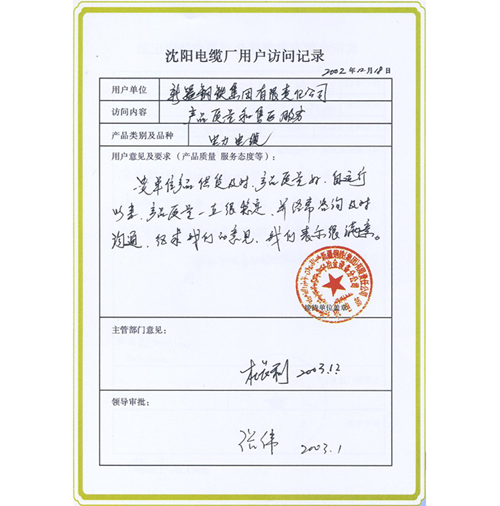 沈阳电缆厂用户访问记录
2002年12月18日
用户单位 新疆钢铁集团有限责任公司
访问内容 产品质量和售后服务
产品类别及品种 电力电缆
用户意见及要求(产品质量 服务态度等):
该单位产品供货及时,产品质量好,自运行
以来,产品质量一直很稳定,并经常咨询及时
沟通,征求我们的意见,我们表示很满意。
接待单位盖章
主管部门意见:
2003.12
领导审批:
张伟 2003.1